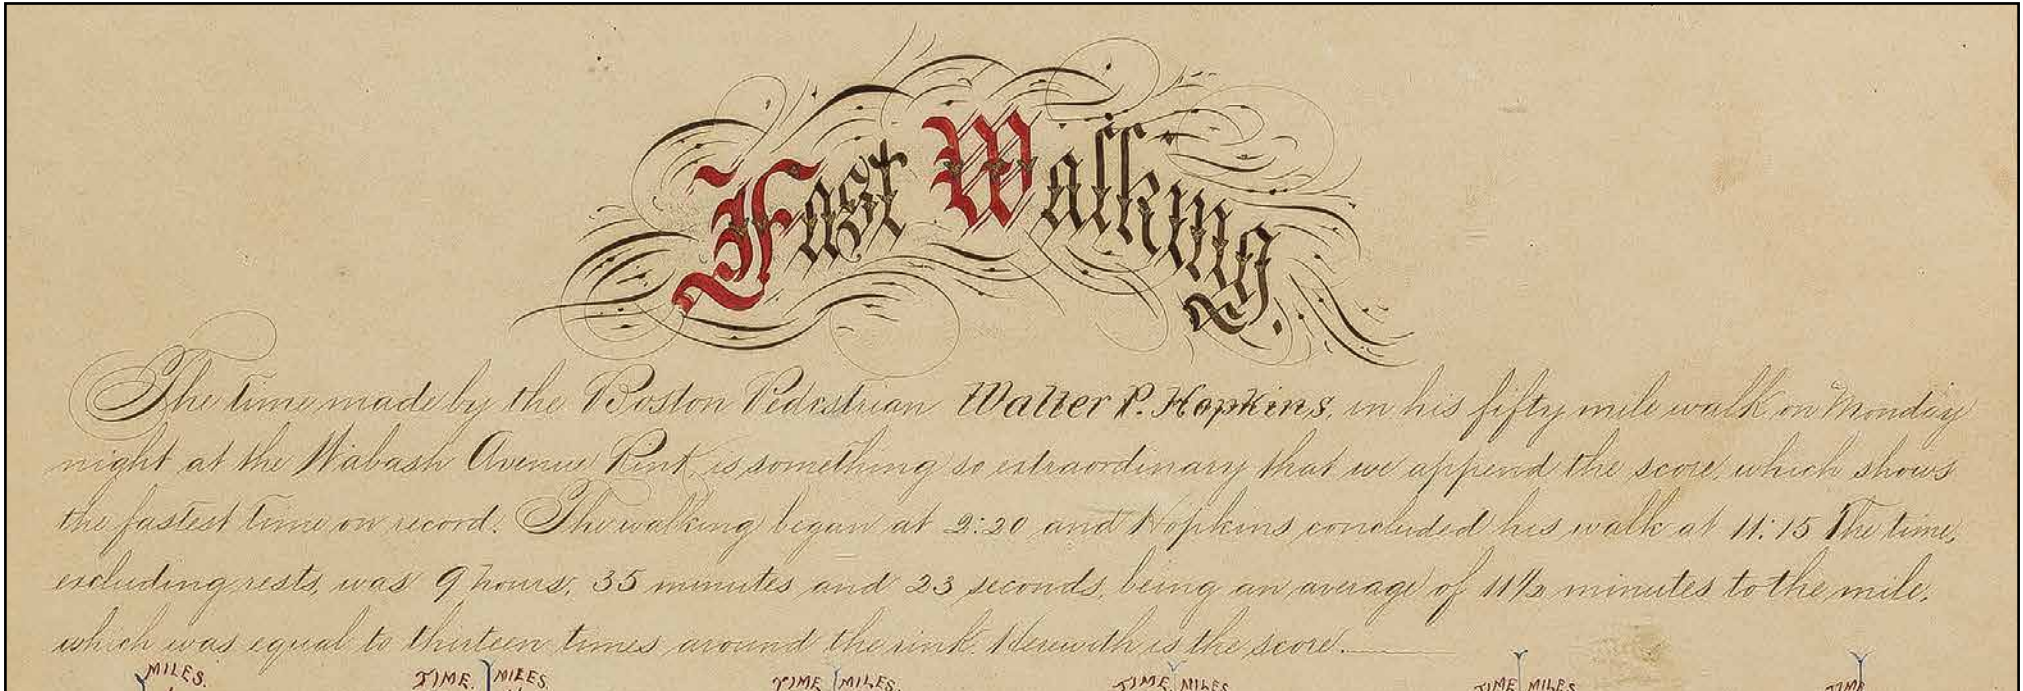 Fast Walking.
The time made by the Boston Pedestrian Walter P. Hopkins, in his fifty mile walk on Monday
night at the Wabash Avenue Rink, is something so extraordinary that we append the score, which shows
the fastest time on record. The walking began at 2:20 and Hopkins concluded his walk at 11:15 The time,
excluding rests, was 9 hours, 35 minutes and 23 seconds, being an average of 11 1/2 minutes to the mile,
which was equal to thirteen times around the rink. Herewith is the score.
MILES. TIME. MILES. TIME MILES. TIME MILES. TIME MILES. TIME